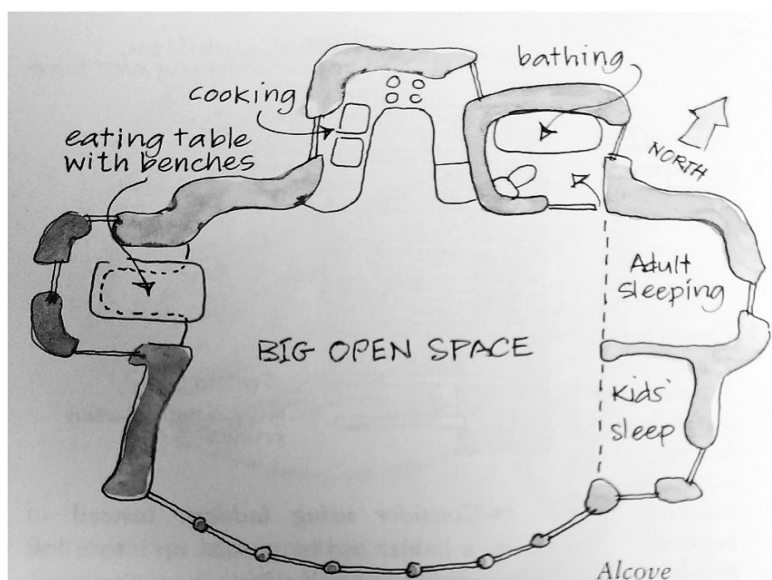 bathing
cooking
eating table
with benches
NORTH
Adult
sleeping
BIG OPEN SPACE
Kids'
sleep
Alcove